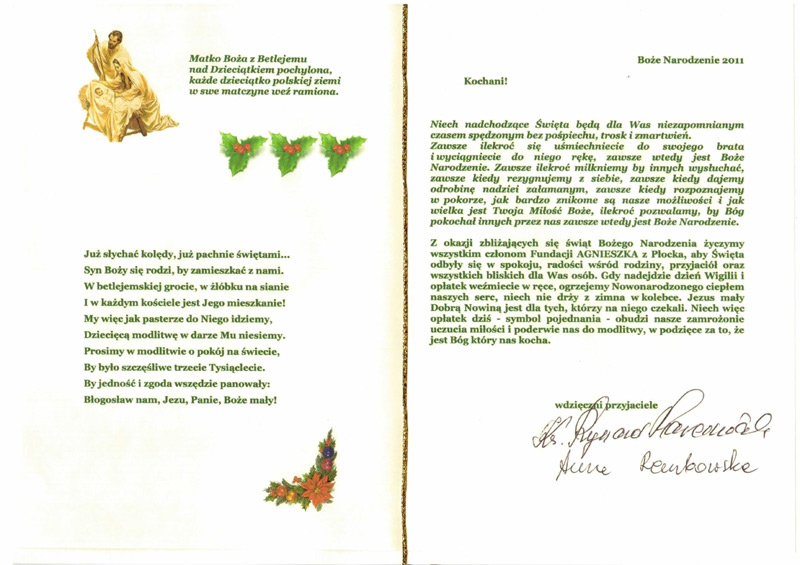 Matko Boża z Betlejemu
nad Dzieciątkiem pochylona,
każde dzieciątko polskiej ziemi
w swe matczyne weź ramiona.
Już słychać kolędy, już pachnie świętami...
Syn Boży się rodzi, by zamieszkać z nami.
W betlejemskiej grocie, w żłóbku na sianie
I w każdym kościele jest Jego mieszkanie!
My więc jak pasterze do Niego idziemy,
Dziecięcą modlitwę w darze Mu niesiemy.
Prosimy w modlitwie o pokój na świecie,
By było szczęśliwe trzecie Tysiąclecie.
By jedność i zgoda wszędzie panowały:
Błogosław nam, Jezu, Panie, Boże mały!
Boże Narodzenie 2011
Kochani!
Niech nadchodzące Święta będą dla Was niezapomnianym
czasem spędzonym bez pośpiechu, trosk i zmartwień.
Zawsze ilekroć się uśmiechniecie do swojego brata
i wyciągniecie do niego rękę, zawsze wtedy jest Boże
Narodzenie. Zawsze ilekroć milkniemy by innych wysłuchać,
zawsze kiedy rezygnujemy z siebie, zawsze kiedy dajemy
odrobinę nadziei załamanym, zawsze kiedy rozpoznajemy
w pokorze, jak bardzo znikome są nasze możliwości i jak
wielka jest Twoja Miłość Boże, ilekroć pozwalamy, by Bóg
pokochał innych przez nas zawsze wtedy jest Boże Narodzenie.
Z okazji zbliżających się świąt Bożego Narodzenia życzymy
wszystkim członom Fundacji AGNIESZKA z Płocka, aby Święta
odbyły się w spokoju, radości wśród rodziny, przyjaciół oraz
wszystkich bliskich dla Was osób. Gdy nadejdzie dzień Wigilii i
opłatek weźmiecie w ręce, ogrzejemy Nowonarodzonego ciepłem
naszych serc, niech nie drży z zimna w kolebce. Jezus mały
Dobrą Nowiną jest dla tych, którzy na niego czekali. Niech więc
opłatek dziś - symbol pojednania - obudzi nasze zamrożone
uczucia miłości i poderwie nas do modlitwy, w podzięce za to, że
jest Bóg który nas kocha.
wdzięczni przyjaciele
Ks. Ryszard
Anna Rembowska